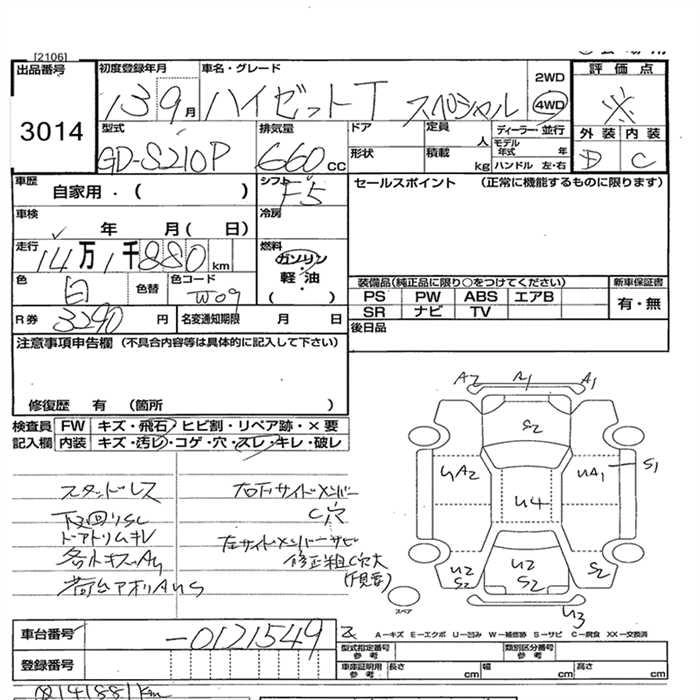 [2106]
出品番号
3014
初度登録年月
13 9月
車名・グレード
ハイゼットT スペシャル
2WD
4WD
評価点
※
外装 内装
D C
型式
GD-S210P
排気量
660cc
ドア
形状
定員 人
積載 kg
ディーラー・並行
モデル年式 年
ハンドル 左・右
車歴
自家用・( )
シフト
F5
セールスポイント (正常に機能するものに限ります)
車検
年 月( 日)
冷房
走行
14万1千880km
燃料
ガソリン・軽油
( )
色
白
色替
色コード
W09
装備品(純正品に限り○をつけてください)
PS PW ABS エアB
SR ナビ TV
新車保証書
有・無
R券
3290円
名変通知期限 月 日
後日品
注意事項申告欄 (不具合内容等は具体的に記入して下さい)
修復歴 有 (箇所 )
検査員記入欄
FW キズ・飛石・ヒビ割・リペア跡・×要
内装 キズ・汚レ・コゲ・穴・スレ・キレ・破レ
スタッドレス
下回りSC
ドアトリムキレ
各小キズAU
荷台アオリAUS
右下サイドメンバー
C穴
左サイドメンバーサビ
修正粗C穴大
A2 A1 A1
S2
UA2 U4 UA1 S1
U2 S2
U2 S2
S2
U3
スペア
A−キズ E−エクボ U−凹み W−補修跡 S−サビ C−腐食 XX−交換済
車台番号
-0121549
登録番号
型式指定番号 参考
類別区分番号 参考
車庫証明用 参考
長さ cm 幅 cm 高さ cm
141881km